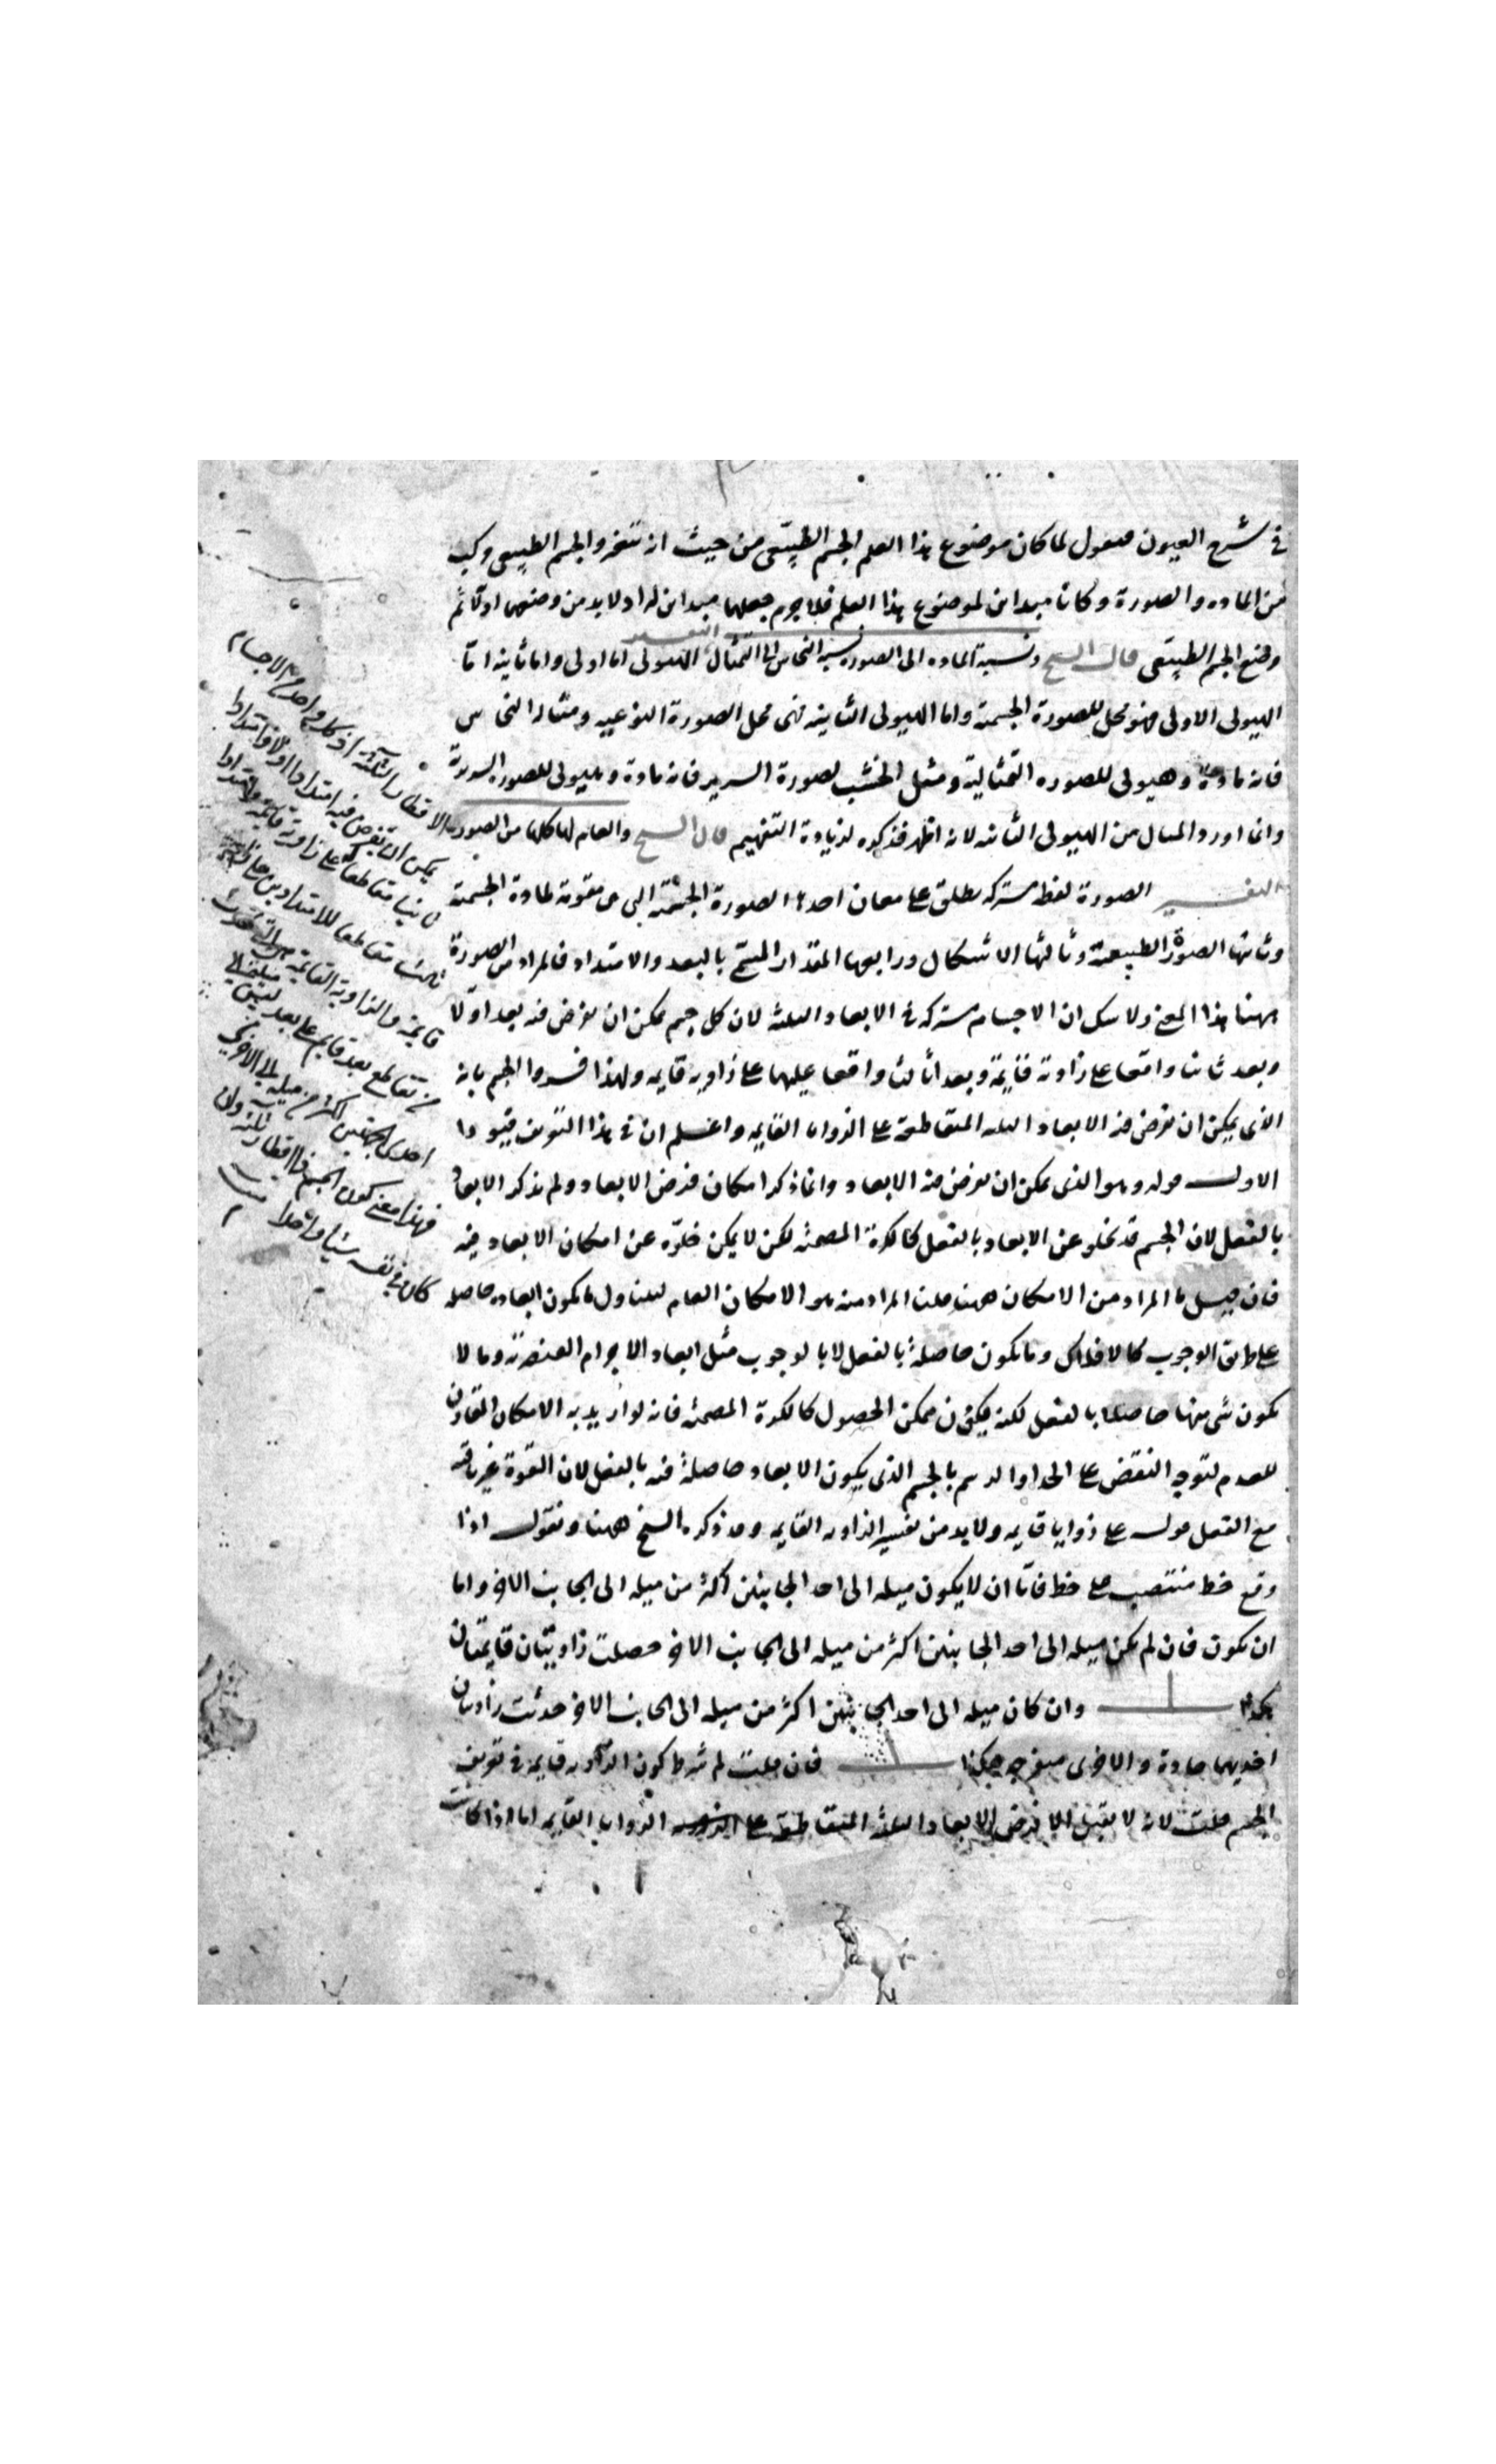 في شرح العيون فنقول لما كان موضوع هذا العلم الجسم الطبيعي من حيث انه متغير والجسم الطبيعي مركب
من الماده والصورة وكانا مبداين لموضوع هذا العلم فلا جرم جعلهما مبداين له اذ لا بد من وضعهما اولا ثم
وضع الجسم الطبيعي قال الشيخ ونسبة الماده الى الصوره نسبة النحاس الى التمثال التفسير الهيولى اما اولى واما ثانيه اما
الهيولى الاولى فهو محل للصورة الجسمية واما الهيولى الثانيه فهى محل الصورة النوعيه ومثاله النحاس
فانه مادة وهيولى للصوره التمثالية ومثل الخشب لصورة السرير فانه مادة وهيولى للصوره السريرية
وانما اورد المثال من الهيولى الثانيه لانه اظهر فذكره لزيادة التفهيم قال الشيخ والعام لها كلها من الصور
التفسير الصورة لفظ مشترك يطلق على معان احدها الصورة الجسمية التى هى مقومة لمادة الجسمية
وثانيها الصورة الطبيعية وثالثها الاشكال ورابعها المقدار المسمى بالبعد والامتداد فالمراد من الصورة
ههنا هذا المعنى ولا شك ان الاجسام مشتركه في الابعاد الثلثه لان كل جسم يمكن ان يفرض فيه بعد اولا
وبعد ثانيا واقعا على زاوية قايمة وبعد ثالث واقعا عليهما على زاويه قايمه ولهذا فسروا الجسم بانه
الذى يمكن ان يفرض فيه الابعاد الثلثه المتقاطعة على الزوايا القايمه واعلم ان في هذا التعريف قيودا
الاول قوله وهو الذى يمكن ان يفرض فيه الابعاد وانما ذكر امكان فرض الابعاد ولم يذكر الابعاد
بالفعل لان الجسم قد يخلو عن الابعاد بالفعل كالكرة المصمته لكن لا يمكن خلوه عن امكان الابعاد فيه
فان قيل ما المراد من الامكان ههنا قلت المراد منه هو الامكان العام ليتناول ما يكون ابعاده حاصله
على طريق الوجوب كالافلاك وما يكون حاصلة بالفعل لا بالوجوب مثل ابعاد الاجرام العنصرية وما لا
يكون شى منها حاصلا بالفعل لكنه يكون ممكن الحصول كالكرة المصمته فانه لو اريد به الامكان المقارن
للعدم لتوجه النقض على الحد او الرسم بالجسم الذى يكون الابعاد حاصلة فيه بالفعل لان القوة غير باقيه
مع الفعل قوله على زوايا قايمه ولا بد من تفسير الزاويه القايمه وقد ذكره الشيخ ههنا ونقول اذا
وقع خط منتصب على خط فاما ان لا يكون ميله الى احد الجانبين اكثر من ميله الى الجانب الاخر واما
ان يكون فان لم يكن ميله الى احد الجانبين اكثر من ميله الى الجانب الاخر حصلت زاويتان قايمتان
هكذا وان كان ميله الى احد الجانبين اكثر من ميله الى الجانب الاخر حدثت زاويتان
احديهما حادة والاخرى منفرجه هكذا فان قلت لم شرط كون الزاويه قايمه في تعريف
الجسم قلت لانه لا يقبل الا فرض الابعاد الثلثه المتقاطعة على الزوايا القايمه اما اذا كانت
الاقطار الثلثة اذ كل واحد من الاجسام
يمكن ان يفرض فيه امتدادا اولا وامتدادا
ثانيا مقاطعا له على زاوية قايمة وامتدادا
ثالثا مقاطعا للامتدادين على
قايمة والزاوية القايمة هى التى تحدث
من تقاطع بعد قايم على بعد ليس ميله الى
احدى الجهتين اكثر من ميله الى الاخرى
فهذا معنى كون الجسم ذا اقطار ثلثة وان
كان في نفسه شيئا واحدا